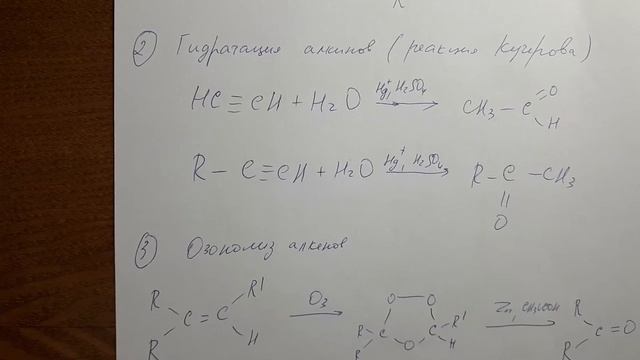 R
② Гидратация алкинов (реакция Кучерова)
HC≡CH + H₂O Hg⁺, H₂SO₄ → CH₃ – C =O H
R – C≡CH + H₂O Hg⁺, H₂SO₄ → R – C – CH₃
O
③ Озонолиз алкенов
R R C = C R' H O₃ → O – O R R C O C R' H Zn, CH₃COOH → R R C = O